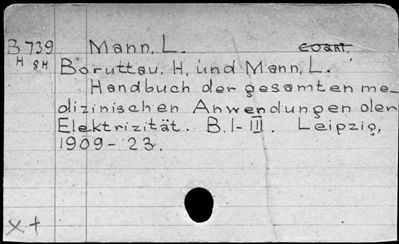 B 739 Mann, L.
H 8H Boruttau, H, und Mann, L.
Handbuch der gesamten me-
dizinischen Anwendungen der
Elektrizität. B. I-III. Leipzig,
1909-23.
X +